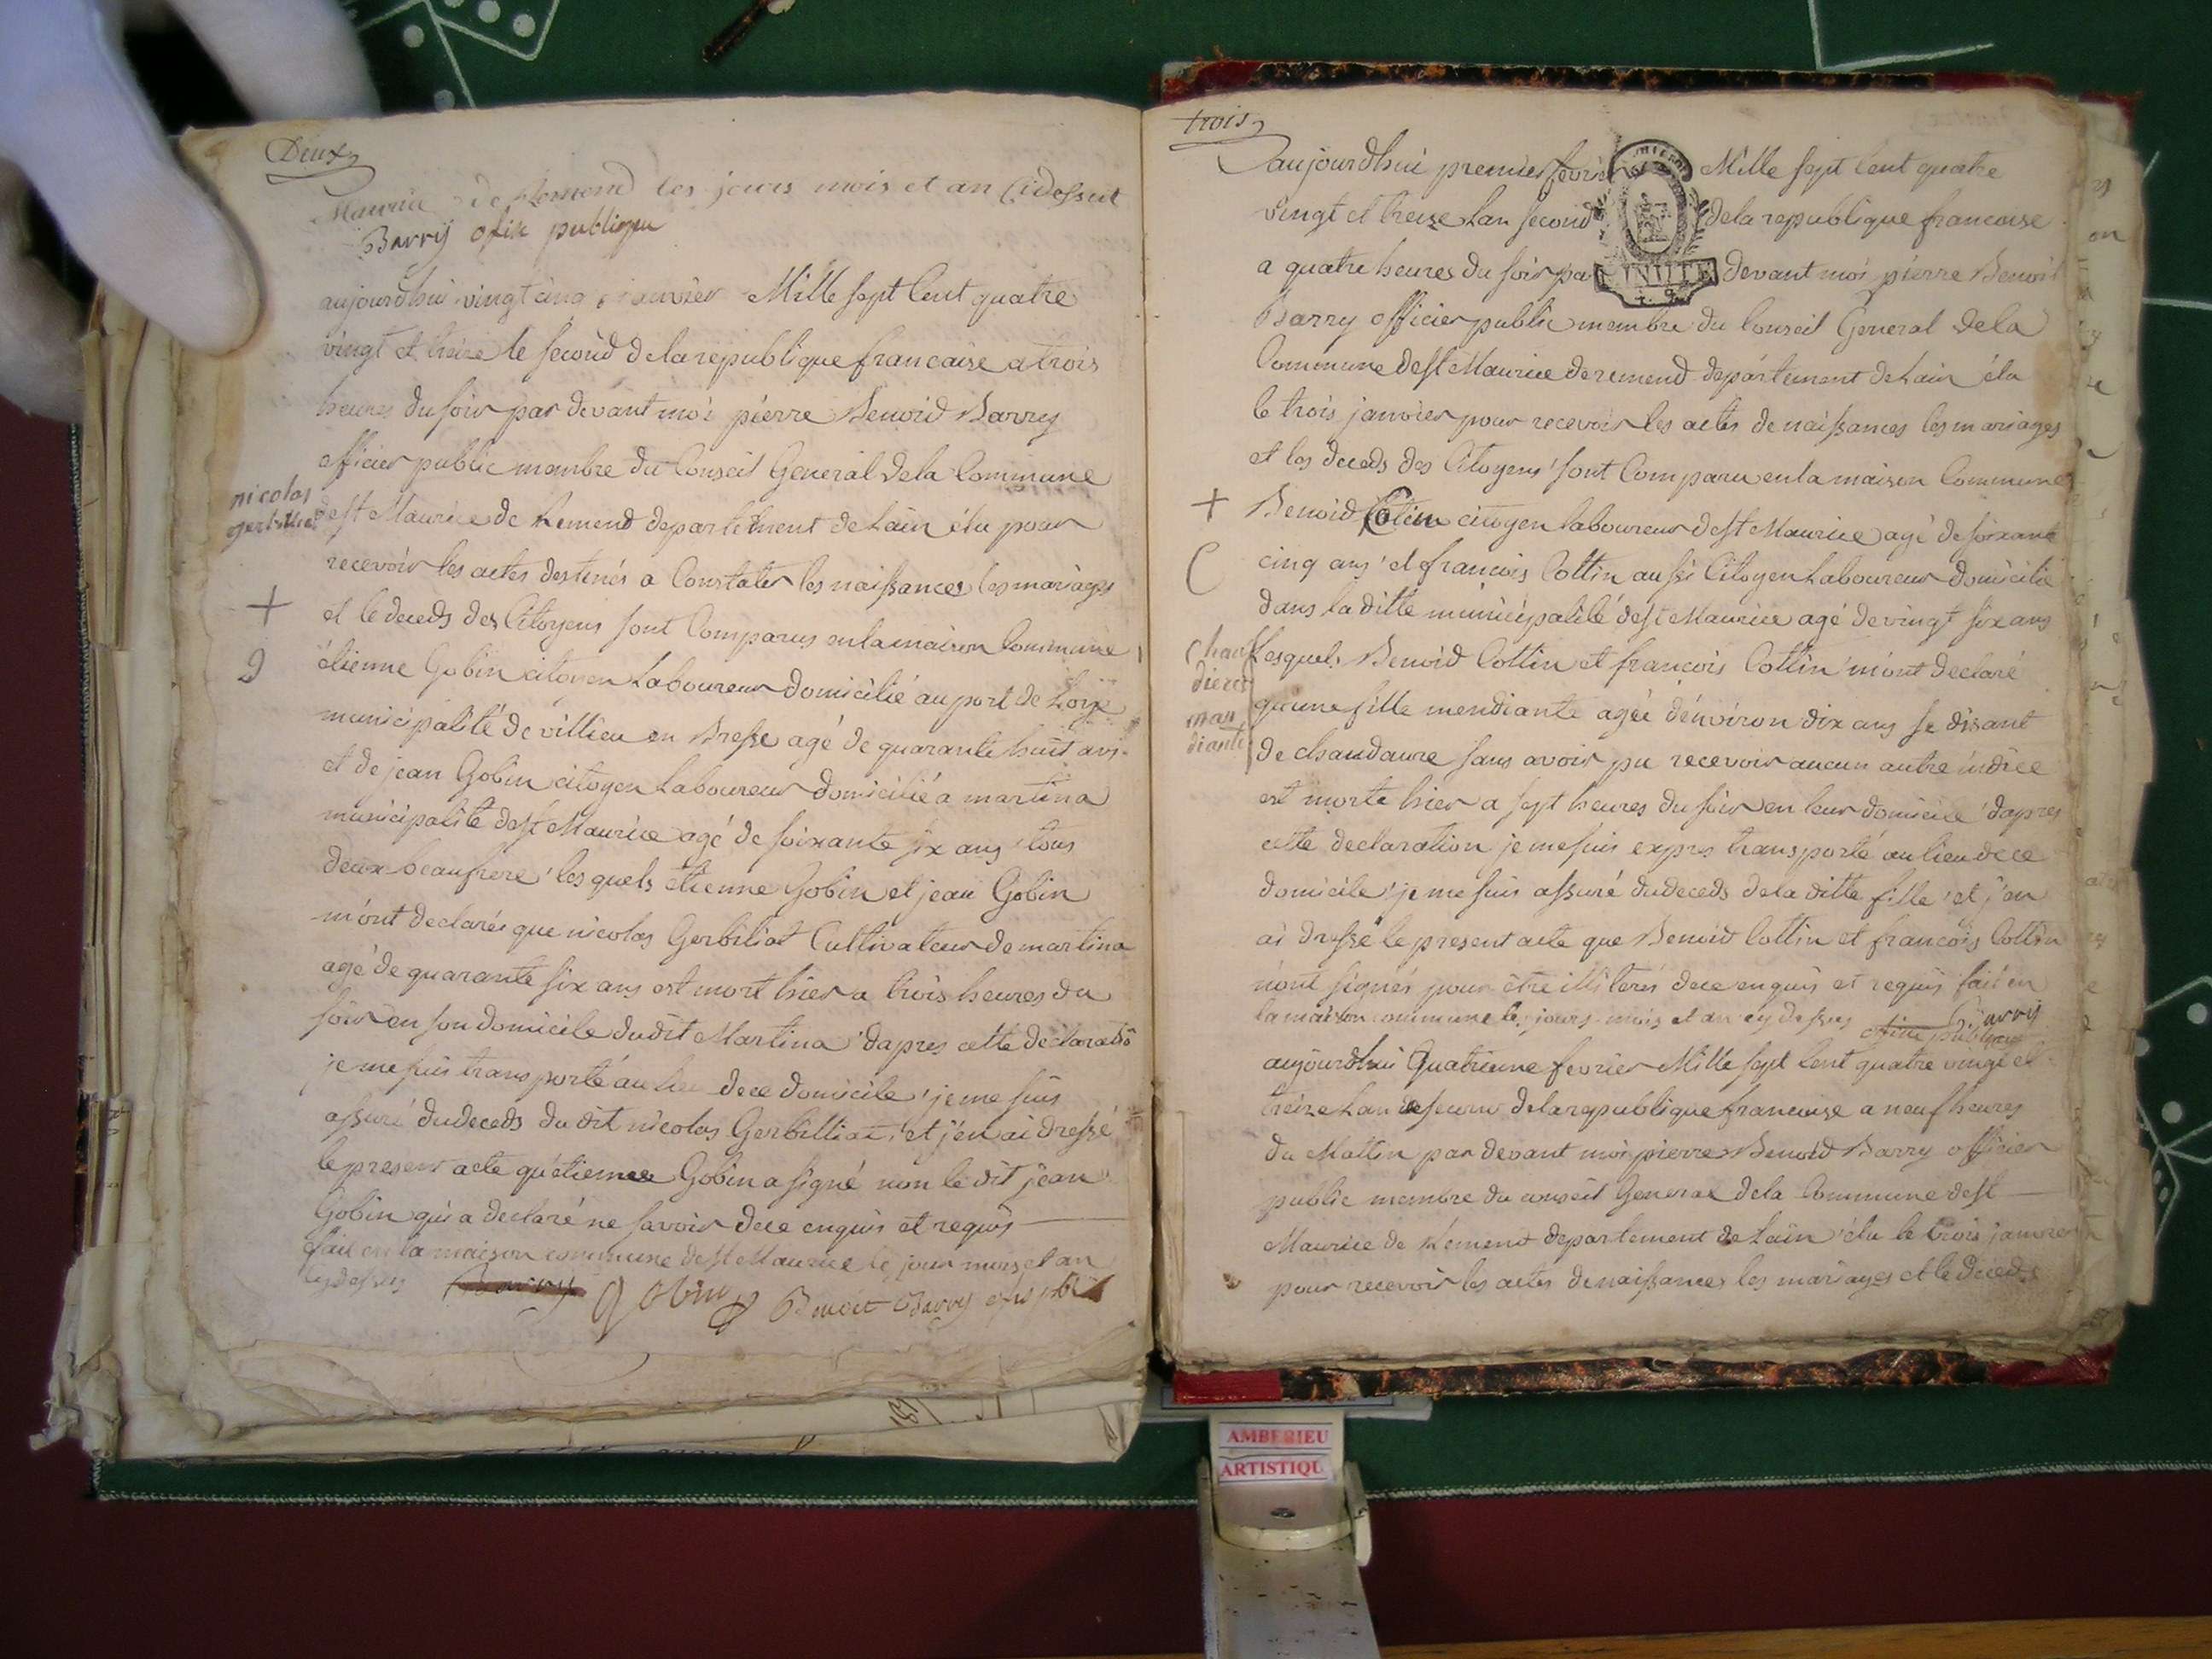 Deux
Maurice de Remend les jours mois et an Cidessut
Barry ofix publique
aujourdhui vingt cinq janvier Mille sept Cent quatre
vingt et treize le second de la republique francaise a trois
heures du soir par devant moi pierre Benoid Barry
officier public membre du Conseil General de la Commune
nicolas
gerbillia
de st Maurice de Remend departement de Lain élu pour
recevoir les actes destinés a Constater les naissances les mariages
et le deceds des Citoyens sont Comparus en la maison Commune
+
étienne Gobin citoyen Laboureur domicilié au port de Loye
municipalité de villieu en Bresse agé de quarante huit ans
et de jean Gobin citoyen Laboureur domicilié a martina
municipalité de st Maurice agé de soixante six ans tous
deux beaufrere les quels etienne Gobin et jean Gobin
m'ont declarés que nicolas Gerbiliat Cultivateur de martina
agé de quarante six ans est mort hier a trois heures du
soir en son domicile dudit Martina dapres cette declaratiõ
je me suis transporté au lieu de ce domicile je me suis
assuré du deceds du dit nicolas Gerbilliat et j'en ai dressé
le present acte qu'etienne Gobin a signé non le dit jean
Gobin qui a declaré ne savoir de ce enquis et requis
fait en la maison commune de st Maurice le jour mois et an
cy dessus Barry Gobin Benoit Barry ofis pbl
trois
aujourdhui premier fevrier Mille sept Cent quatre
vingt et treize Lan second de la republique francaise
a quatre heures du soir par devant moi pierre Benoit
MINUTE
Barry officier public membre du Conseil General de la
Commune de st Maurice de remend departement de Lain élu
le trois janvier pour recevoir les actes de naissances les mariages
et les deceds des Citoyens sont Comparu en la maison Commune
+ Benoid Cotin citoyen laboureur de st Maurice agé de soixante
C
cinq ans et francois Cottin aussi Citoyen Laboureur domicilié
dans la ditte municipalité de st Maurice agé de vingt six ans
chau
dieres
man
diante
Lesquels Benoid Cottin et francois Cottin m'ont declaré
qu'une fille mendiante agée d'environ dix ans se disant
de chaudaure sans avoir pu recevoir aucun autre indice
est morte hier a sept heures du soir en leur domicile dapres
cette declaration je me suis expres transporté au lieu de ce
domicile je me suis assuré du deceds de la ditte fille et j'en
ai dressé le present acte que Benoid Cottin et francois Cottin
n'ont signés pour être illiterés de ce enquis et requis fait en
la maison commune le jours mois et an cy dessus Barry
publique
aujourdhui Quatrieme fevrier Mille sept Cent quatre vingt et
treize Lan second de la republique francaise a neuf heures
du Mattin par devant moi pierre Benoid Barry officier
public membre du conseil General de la Commune de st
Maurice de Remend departement de Lain élu le trois janvier
pour recevoir les actes de naissances les mariages et le deceds
AMBERIEU
ARTISTIQU